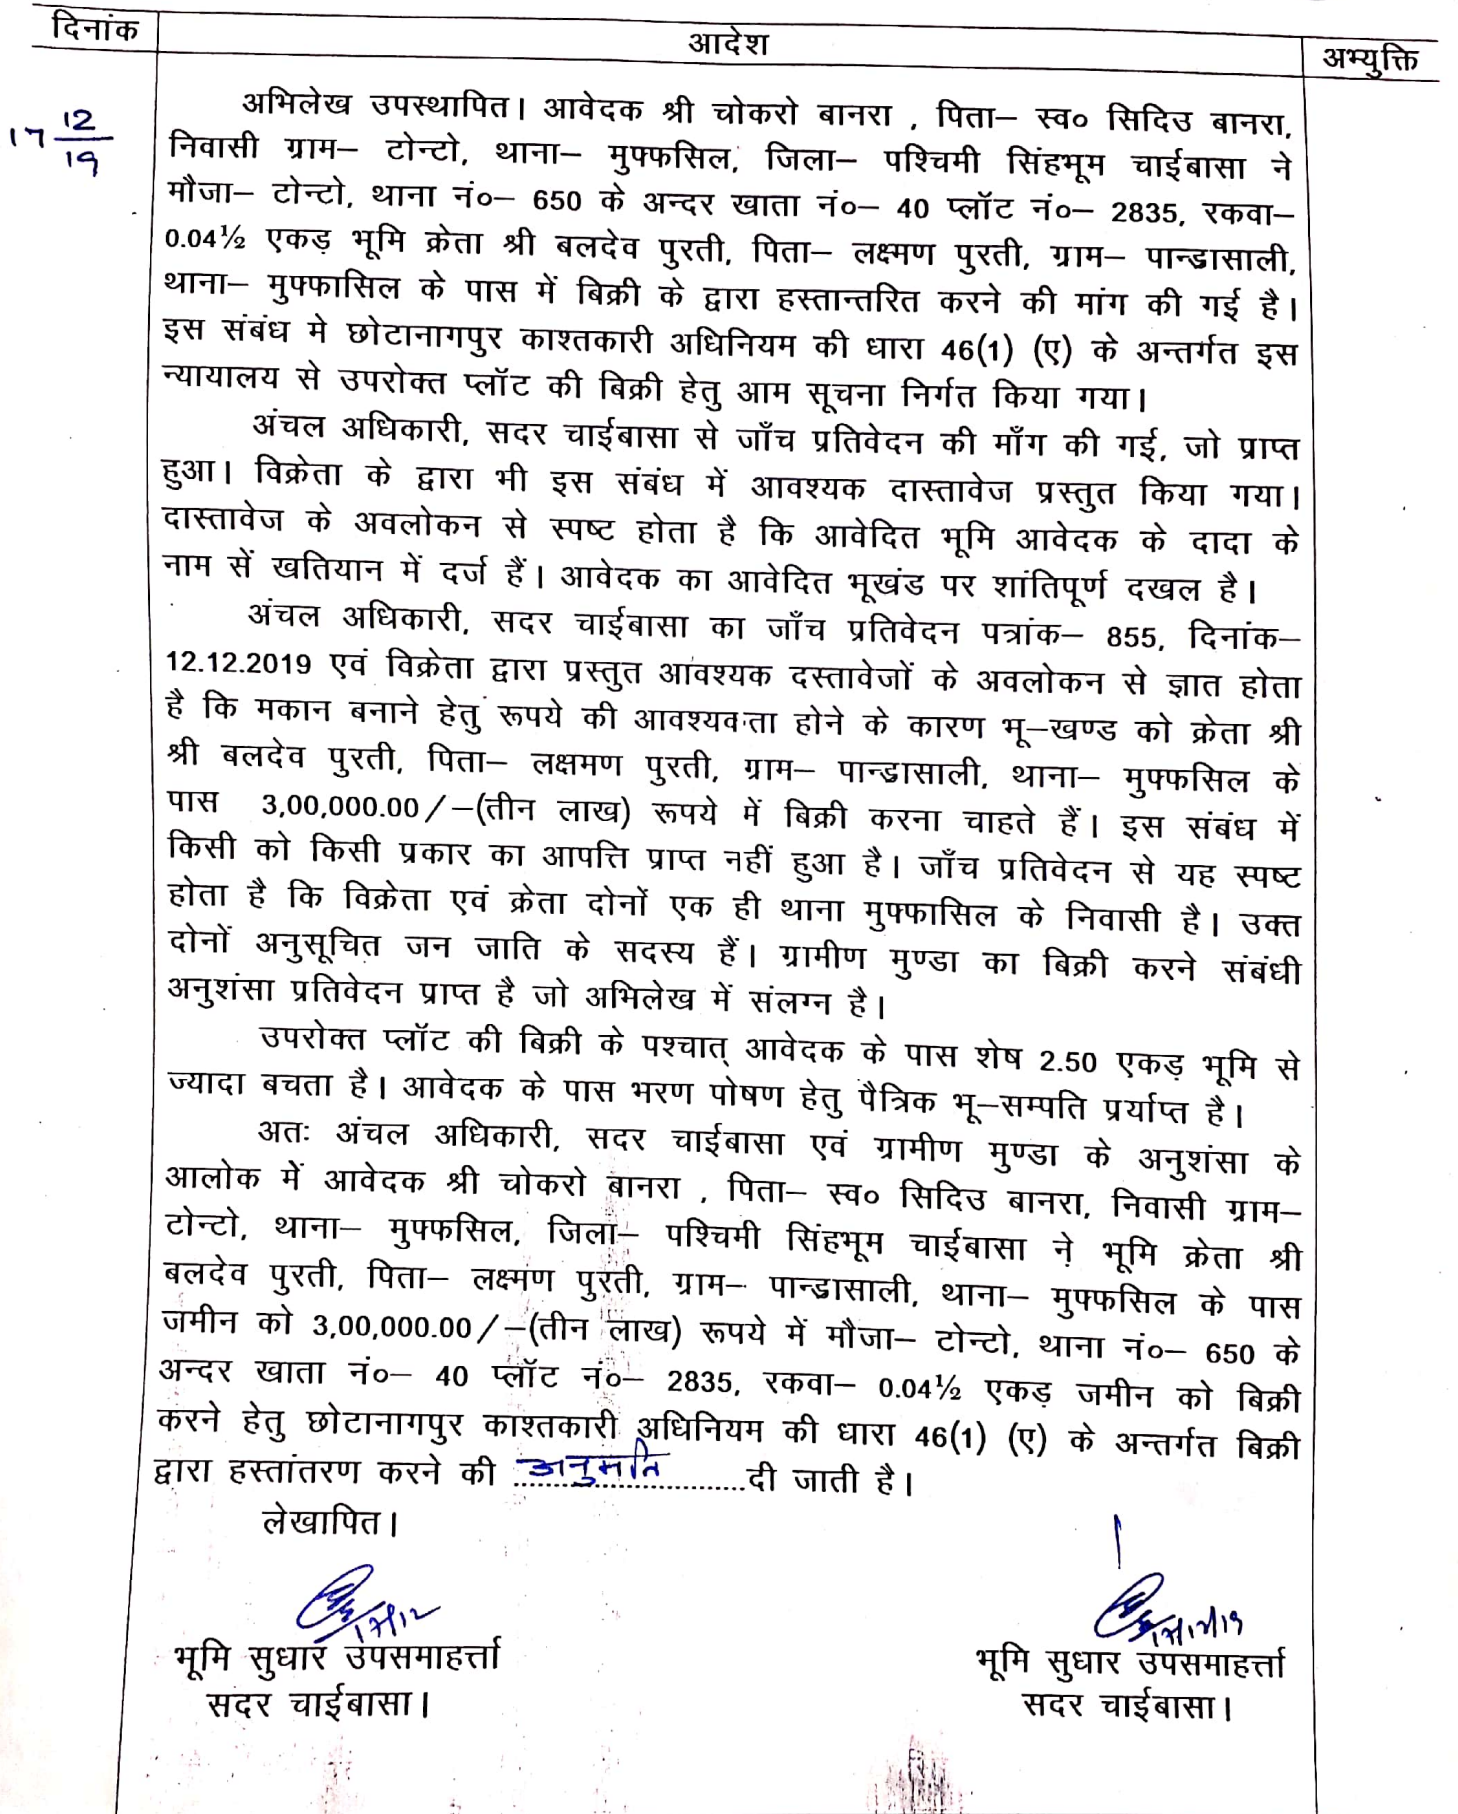 दिनांक
आदेश
अभ्युक्ति
17 12/19
अभिलेख उपस्थापित। आवेदक श्री चोकरो बानरा , पिता– स्व० सिदिउ बानरा,
निवासी ग्राम– टोन्टो, थाना– मुफ्फसिल, जिला– पश्चिमी सिंहभूम चाईबासा ने
मौजा– टोन्टो, थाना नं०– 650 के अन्दर खाता नं०– 40 प्लॉट नं०– 2835, रकवा–
0.04½ एकड़ भूमि क्रेता श्री बलदेव पुरती, पिता– लक्ष्मण पुरती, ग्राम– पान्डासाली,
थाना– मुफ्फासिल के पास में बिक्री के द्वारा हस्तान्तरित करने की मांग की गई है।
इस संबंध मे छोटानागपुर काश्तकारी अधिनियम की धारा 46(1) (ए) के अन्तर्गत इस
न्यायालय से उपरोक्त प्लॉट की बिक्री हेतु आम सूचना निर्गत किया गया।
अंचल अधिकारी, सदर चाईबासा से जाँच प्रतिवेदन की माँग की गई, जो प्राप्त
हुआ। विक्रेता के द्वारा भी इस संबंध में आवश्यक दास्तावेज प्रस्तुत किया गया।
दास्तावेज के अवलोकन से स्पष्ट होता है कि आवेदित भूमि आवेदक के दादा के
नाम सें खतियान में दर्ज हैं। आवेदक का आवेदित भूखंड पर शांतिपूर्ण दखल है।
अंचल अधिकारी, सदर चाईबासा का जाँच प्रतिवेदन पत्रांक– 855, दिनांक–
12.12.2019 एवं विक्रेता द्वारा प्रस्तुत आवश्यक दस्तावेजों के अवलोकन से ज्ञात होता
है कि मकान बनाने हेतु रूपये की आवश्यकता होने के कारण भू–खण्ड को क्रेता श्री
श्री बलदेव पुरती, पिता– लक्षमण पुरती, ग्राम– पान्डासाली, थाना– मुफ्फसिल के
पास 3,00,000.00/–(तीन लाख) रूपये में बिक्री करना चाहते हैं। इस संबंध में
किसी को किसी प्रकार का आपत्ति प्राप्त नहीं हुआ है। जाँच प्रतिवेदन से यह स्पष्ट
होता है कि विक्रेता एवं क्रेता दोनों एक ही थाना मुफ्फासिल के निवासी है। उक्त
दोनों अनुसूचित जन जाति के सदस्य हैं। ग्रामीण मुण्डा का बिक्री करने संबंधी
अनुशंसा प्रतिवेदन प्राप्त है जो अभिलेख में संलग्न है।
उपरोक्त प्लॉट की बिक्री के पश्चात् आवेदक के पास शेष 2.50 एकड़ भूमि से
ज्यादा बचता है। आवेदक के पास भरण पोषण हेतु पैत्रिक भू–सम्पति प्रर्याप्त है।
अतः अंचल अधिकारी, सदर चाईबासा एवं ग्रामीण मुण्डा के अनुशंसा के
आलोक में आवेदक श्री चोकरो बानरा , पिता– स्व० सिदिउ बानरा, निवासी ग्राम–
टोन्टो, थाना– मुफ्फसिल, जिला– पश्चिमी सिंहभूम चाईबासा ने भूमि क्रेता श्री
बलदेव पुरती, पिता– लक्ष्मण पुरती, ग्राम– पान्डासाली, थाना– मुफ्फसिल के पास
जमीन को 3,00,000.00/–(तीन लाख) रूपये में मौजा– टोन्टो, थाना नं०– 650 के
अन्दर खाता नं०– 40 प्लॉट नं०– 2835, रकवा– 0.04½ एकड़ जमीन को बिक्री
करने हेतु छोटानागपुर काश्तकारी अधिनियम की धारा 46(1) (ए) के अन्तर्गत बिक्री
द्वारा हस्तांतरण करने की अनुमति दी जाती है।
लेखापित।
17/12
17/12/19
भूमि सुधार उपसमाहर्त्ता
भूमि सुधार उपसमाहर्त्ता
सदर चाईबासा।
सदर चाईबासा।